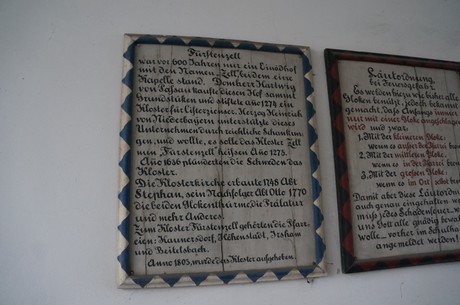 Fürstenzell
war vor 600 Jahren nur ein Einödhof
mit den Namen „Zell", bei dem eine
Kapelle stand. Domherr Hartwig
von Passau kaufte diesen Hof samt
Grundstüken und stiftete ano 1274 ein
Kloster für Cisterzienser. Herzog Heinrich
von Niederbayern unterstützte dieses
Unternehmen durch reichliche Schankun-
gen, und wollte, es solle das Kloster Zell
nun „Fürstenzell" heißen Año 1275.
Año 1636 plünderten die Schweden das
Kloster.
Die Klosterkirche erbaute 1748 Abt
Stephan, sein Nachfolger Abt Otto 1770
die beiden Glokenthürme, die Prälatur
und mehr Anderes.
Zum Kloster Fürstenzell gehörten die Pfar-
eien: Kaunersdorf, Höhenstadt, Irsham
und Beitelsbach.
Anno 1803, wurde das Kloster aufgehoben.
Läutordnung
bei Feuersgefahr.
Es werden hiezu wie bisher alle
Gloken benützt, jedoch bekannt
gemacht, daß Anfangs immer
nur mit einer Gloke angeschlagen
wird und zwar:
1. Mit der kleineren Gloke:
wenn es außer der Pfarrei brennt
2. Mit der mittleren Gloke:
wenn es in der Pfarrei
3. Mit der großen Gloke:
wenn es im Ort selbst
Damit aber diese Läutordnung
auch genau eingehalten werde
muß jedes Schadenfeuer,
uns Gott alle gnädig bewahren
wolle, vorher im Schulhause
angemeldet werden!